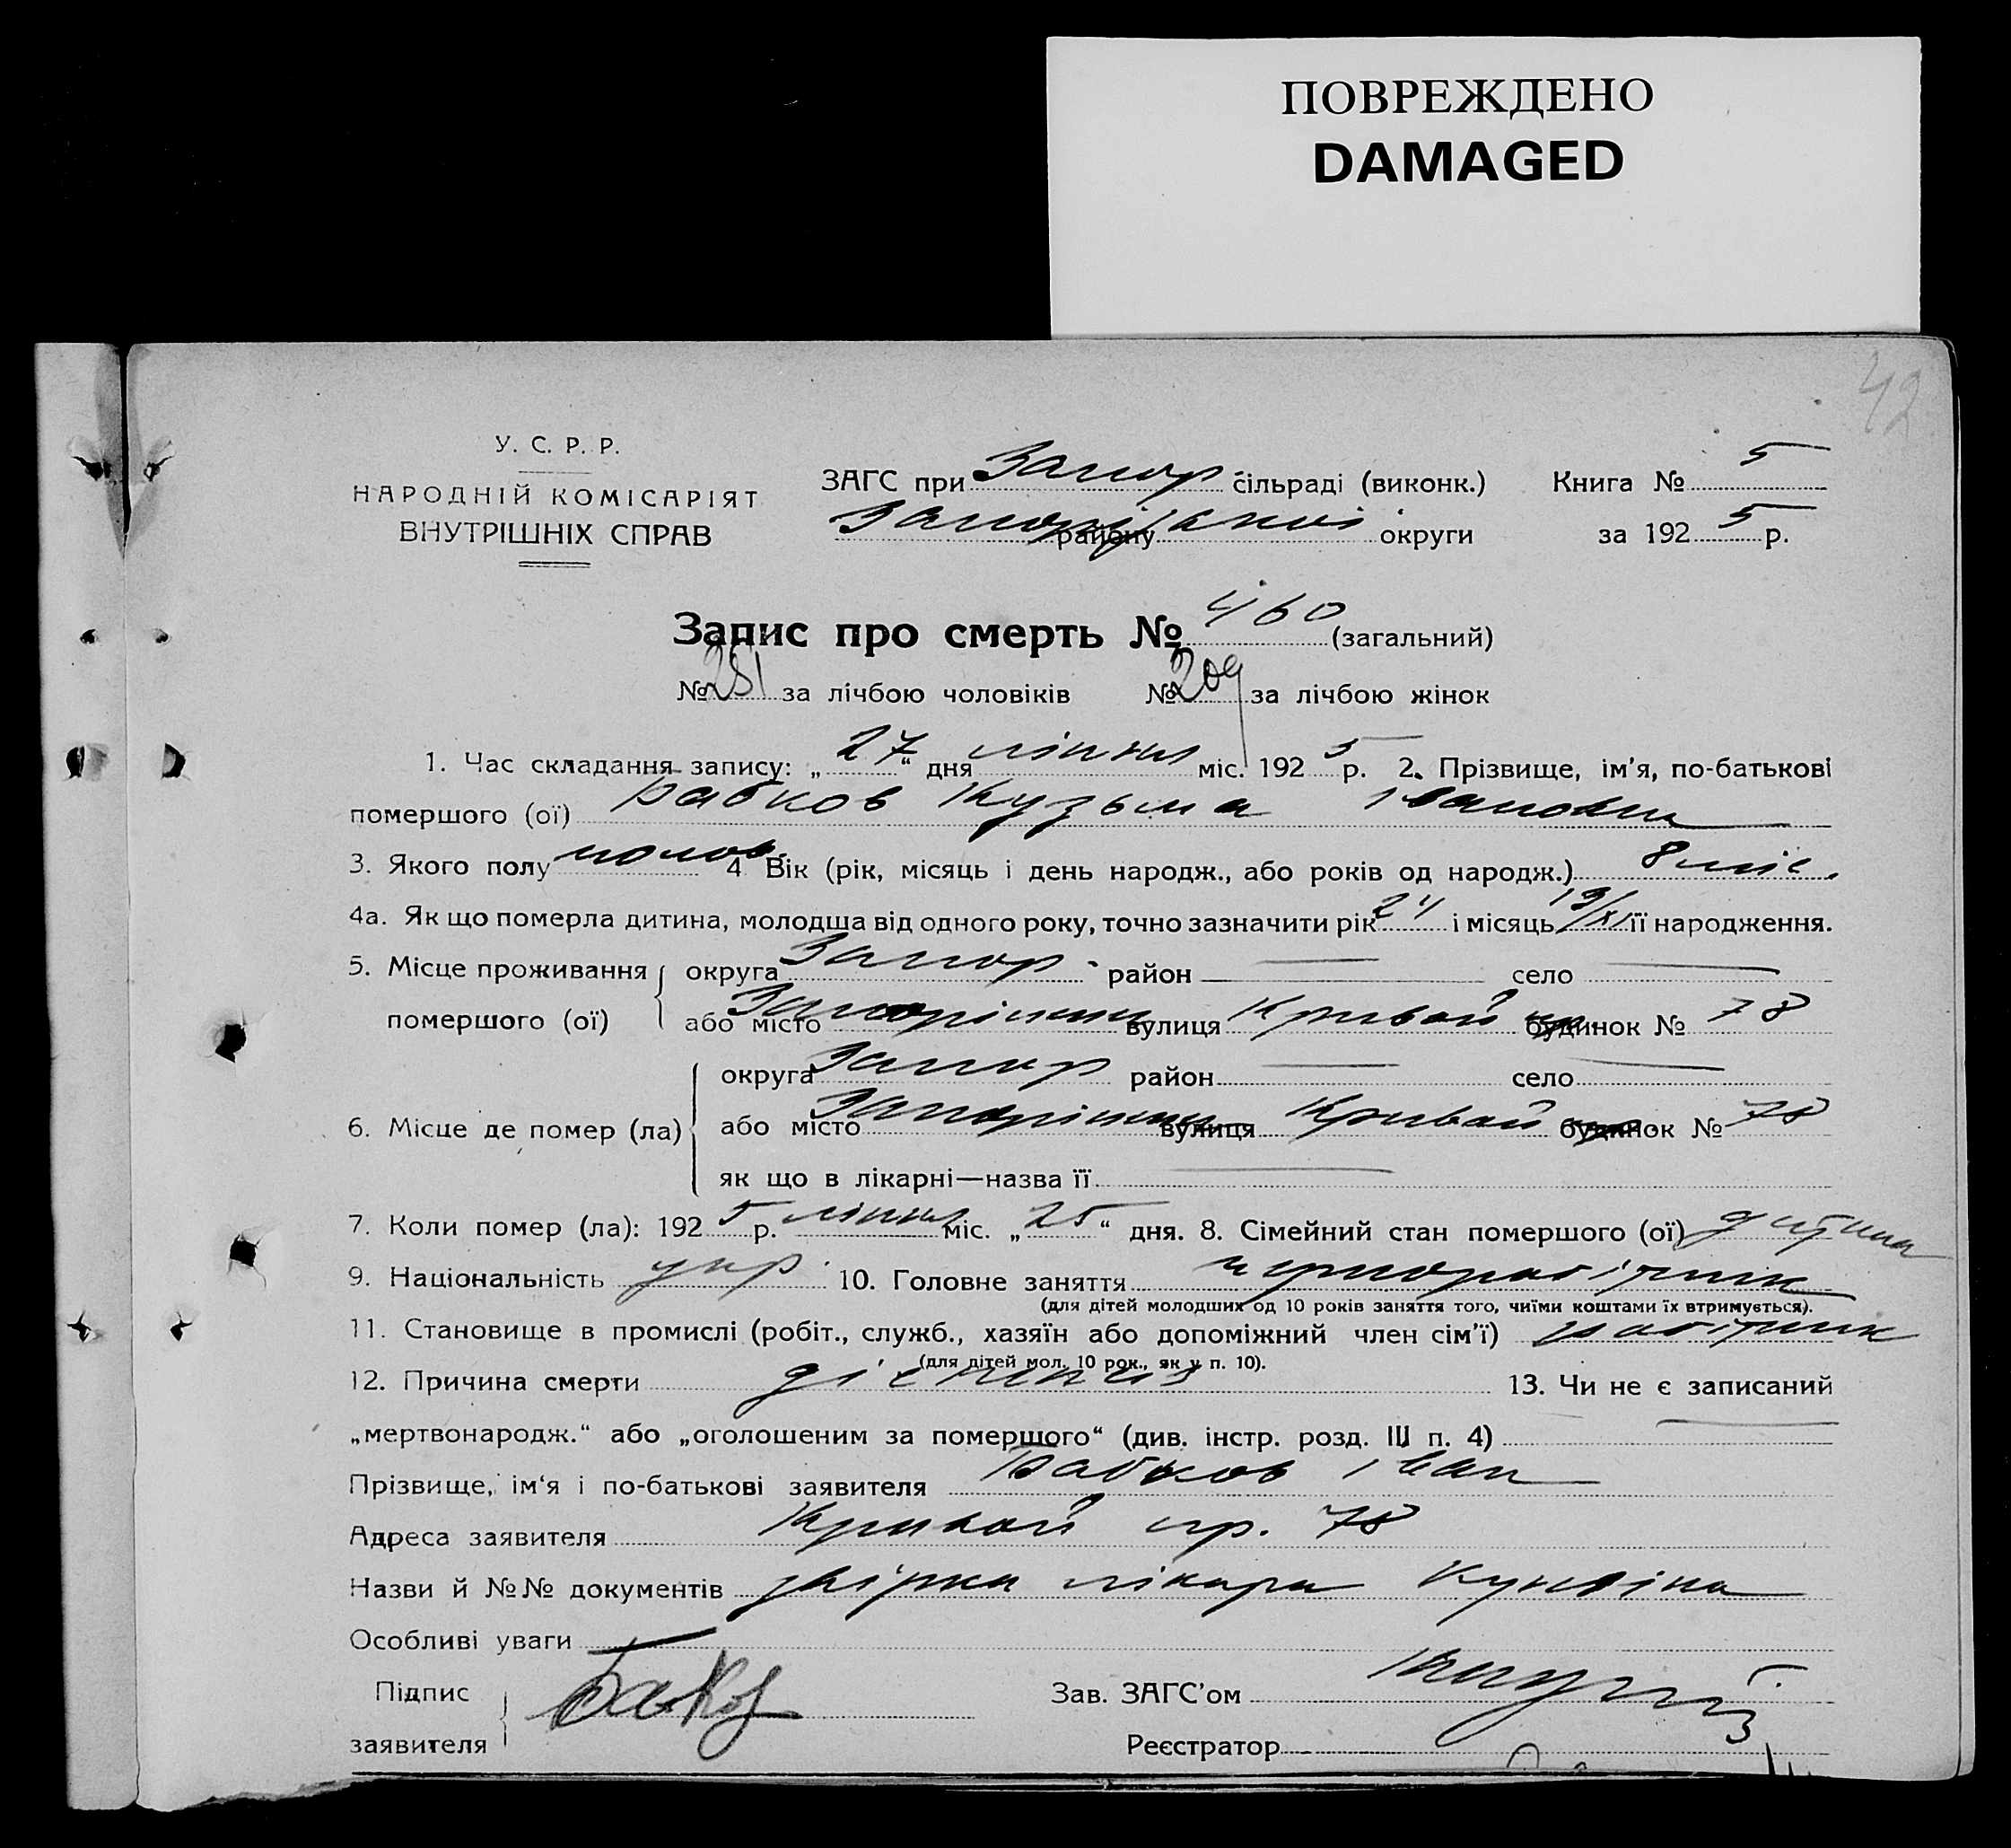 ПОВРЕЖДЕНО
DAMAGED
42
У. С. Р. Р.
НАРОДНІЙ КОМІСАРІЯТ
ВНУТРІШНІХ СПРАВ
ЗАГС при Запор. сільраді (виконк.) Книга № 5
Запорізької району округи за 1925 р.
Запис про смерть № 460 (загальний)
№ 251 за лічбою чоловіків № 209 за лічбою жінок
1. Час складання запису: „27“ дня липня міс. 1925 р. 2. Прізвище, ім'я, по-батькові
помершого (ої) Бабков Кузьма Іванович
3. Якого полу 4 Вік (рік, місяць і день народж., або років од народж.) 8 міс.
4а. Як що померла дитина, молодша від одного року, точно зазначити рік 24 і місяць 13/XI її народження.
5. Місце проживання помершого (ої) округа Запор. район — село —
або місто Запоріжжя вулиця Кривой пр. будинок № 78
6. Місце де помер (ла) округа Запор район — село —
або місто Запоріжжя вулиця Кривой будинок № 78
як що в лікарні—назва її —
7. Коли помер (ла): 1925 р. липня міс. „25“ дня. 8. Сімейний стан помершого (ої) дитина
9. Національність укр. 10. Головне заняття чорноробітник
(для дітей молодших од 10 років заняття того, чиїми коштами їх втримується).
11. Становище в промислі (робіт., служб., хазяїн або допоміжний член сім'ї) робітник
(для дітей мол. 10 рок., як у п. 10).
12. Причина смерти 13. Чи не є записаний
„мертвонародж.“ або „оголошеним за помершого“ (див. інстр. розд. III п. 4) —
Прізвище, ім'я і по-батькові заявителя Бабков Іван
Адреса заявителя Кривой пр. 78
Назви й №№ документів лікаря
Особливі уваги
Підпис заявителя Зав. ЗАГС'ом
Реєстратор